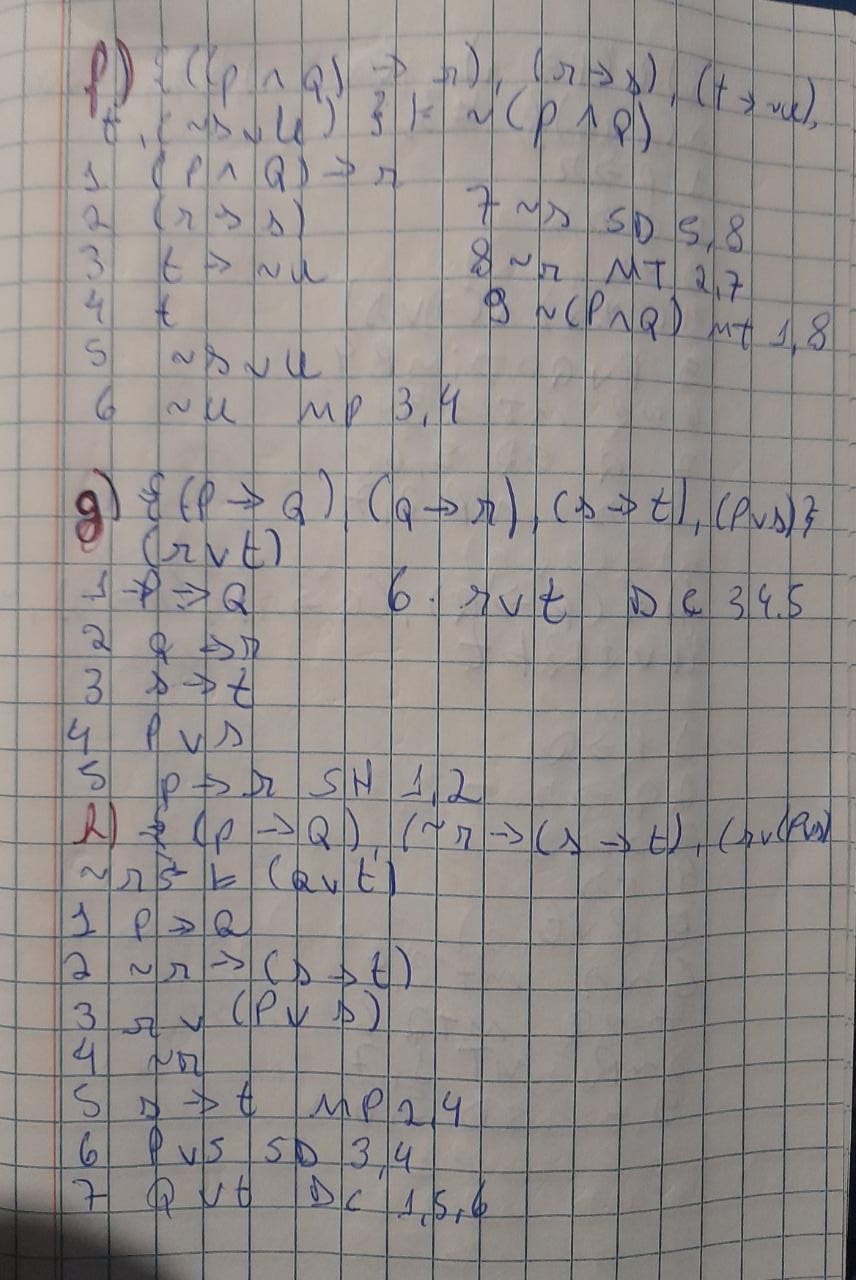 f) {((p ∧ Q) → r), (r → s), (t → ~u),
t, (~s ∨ u) } ⊢ ~(P ∧ Q)
1 (P ∧ Q) → r
2 (r → s)
3 t → ~u
4 t
5 ~s ∨ u
6 ~u MP 3,4
7 ~s SD 5,8
8 ~r MT 2,7
9 ~(P ∧ Q) MT 1,8
g) {(P → Q), (Q → r), (s → t), (P ∨ s)}
(r ∨ t)
1 P → Q
2 Q → r
3 s → t
4 P ∨ s
5 p → r SH 1,2
6. r ∨ t DC 3 4.5
h) {(p → Q), (~r → (s → t), (r ∨ (P ∨ s)
~r} ⊢ (Q ∨ t)
1 P → Q
2 ~r → (s → t)
3 r ∨ (P ∨ s)
4 ~r
5 s → t MP 2,4
6 P ∨ S SD 3,4
7 Q ∨ t DC 1,5,6